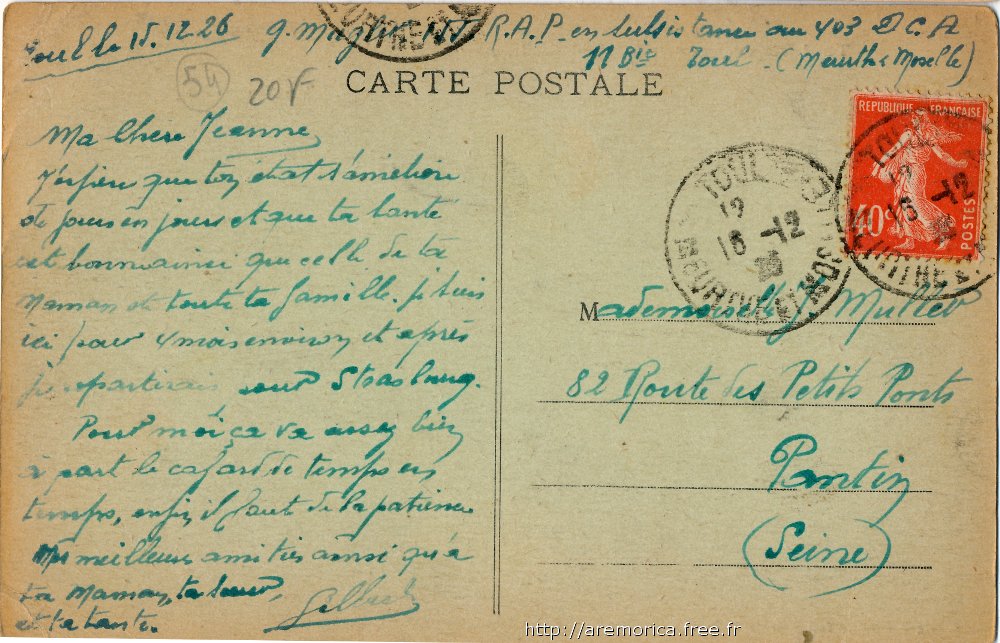 Toul le 15.12.26
R.A.P. en subsistance au 403 D C A
11 Bie Toul - (Meurthe Moselle)
54
20F
CARTE POSTALE
REPUBLIQUE FRANÇAISE
40c
POSTES
TOUL
16 -12
Ma chère Jeanne
J'espère que ton état s'améliore
de jours en jours et que ta santé
est bonne ainsi que celle de ta
maman et toute ta famille. je suis
ici pour 4 mois environ et après
je repartirais pour Strasbourg.
Pour moi ça va assez bien
à part le cafard de temps en
temps, enfin il faut de la patience
Mes meilleurs amitiés ainsi qu'à
ta Maman, ta sœur
et ta tante.
Gilbert
Mademoiselle J.
82 Route des Petits Ponts
Pantin
(Seine)
http://aremorica.free.fr